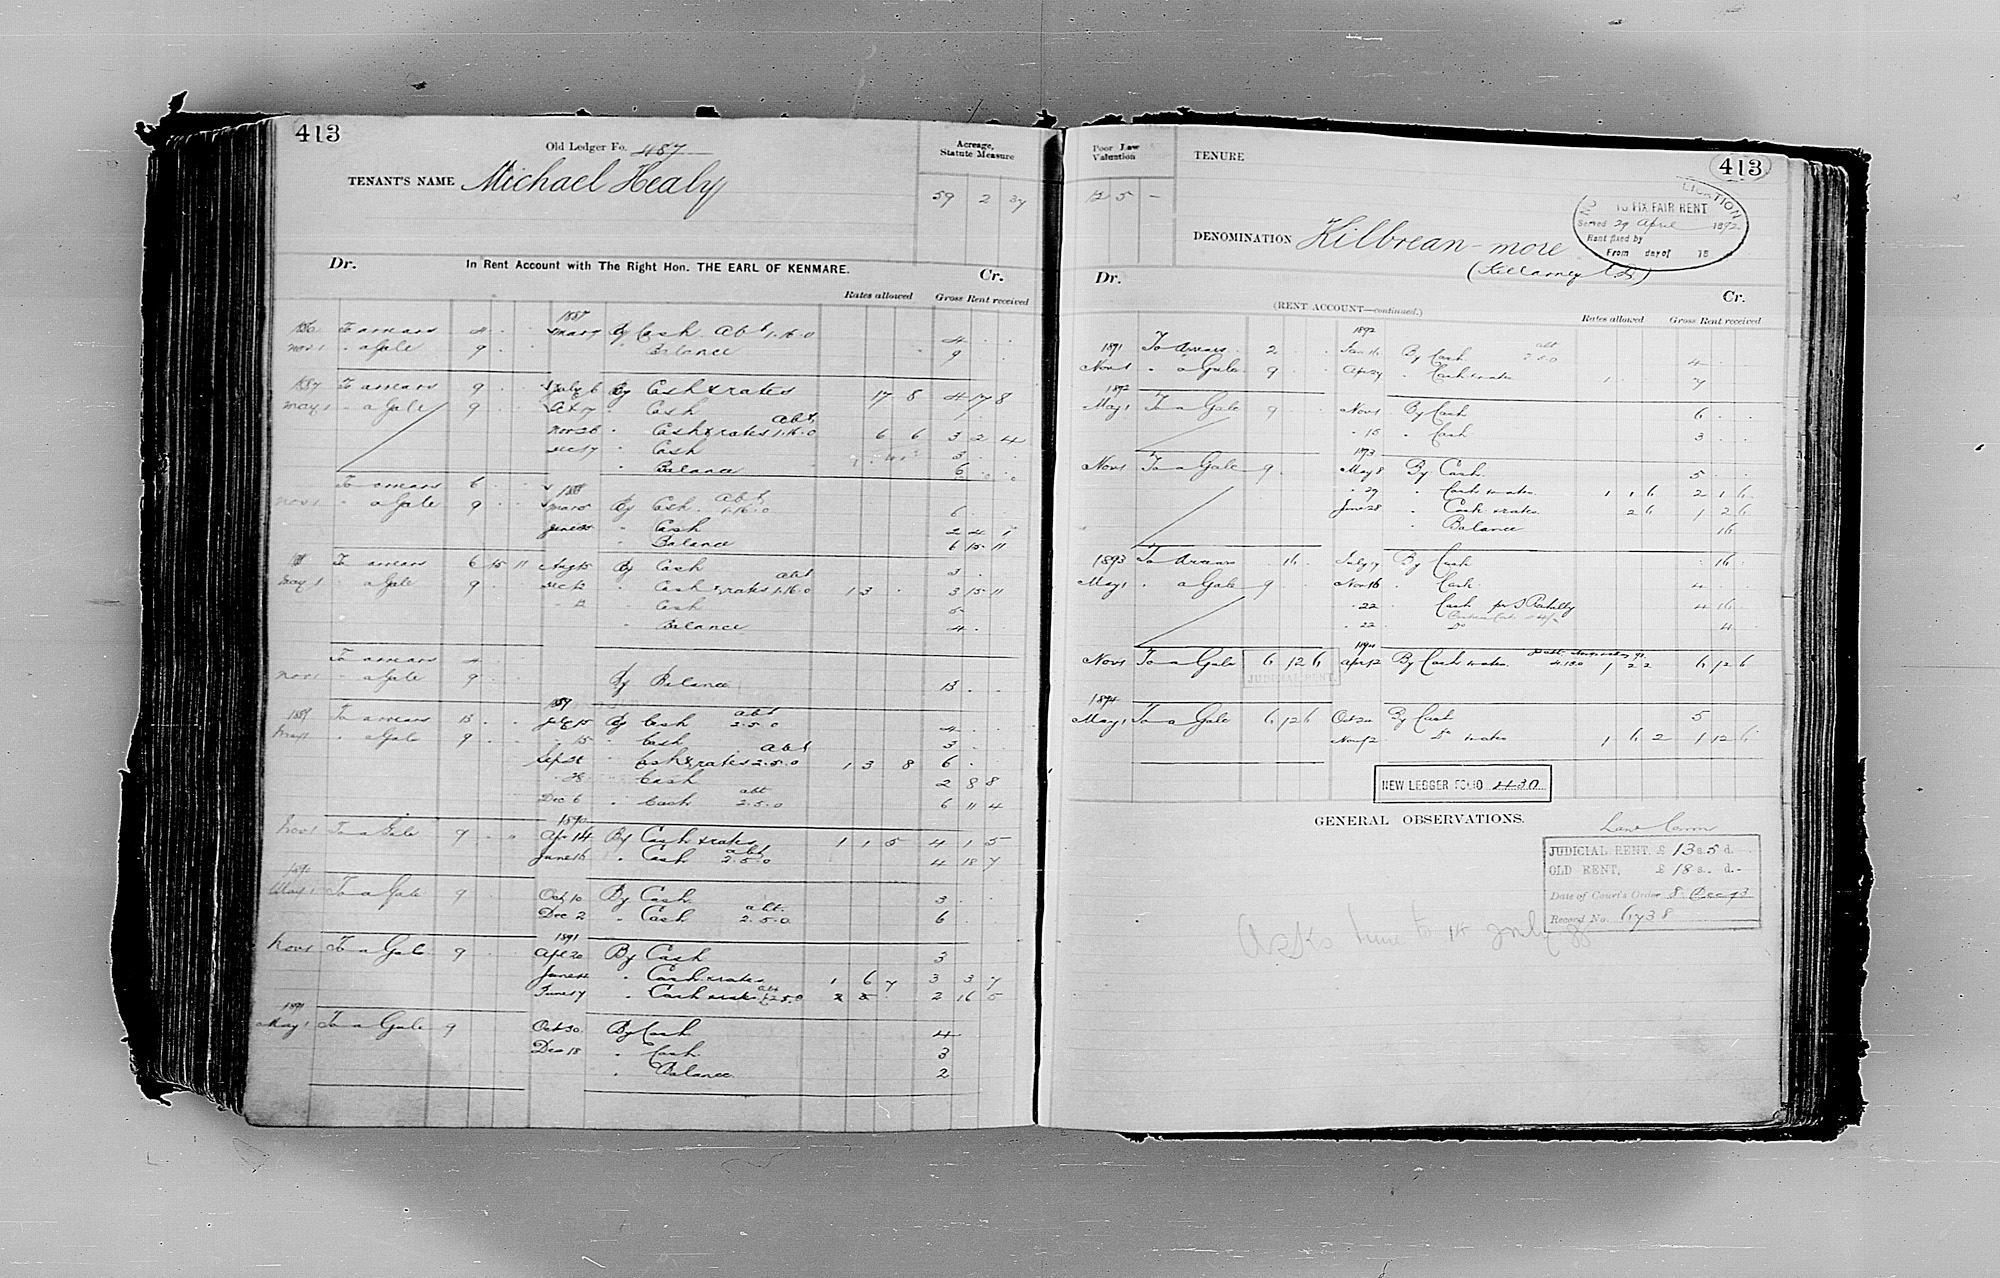 413
Old Ledger Fo. 487
Acreage, Statute Measure
TENANT'S NAME Michael Healy
59 2 37
Dr. In Rent Account with The Right Hon. THE EARL OF KENMARE. Cr.
Rates allowed Gross Rent received
1887
To arrears 4 Mar 7 By Cash Abt 1.16.0 4
Nov 1 " a Gale 9 " Balance 9
1887 To arrears 9 July 6 By Cash & rates 17 8 4 17 8
May 1 " a Gale 9 Oct 7 " Cash 1
Nov 26 " Cash & rates abt. 1.16.0 6 6 3 2 4
Dec 17 " Cash 3
" Balance 6
To arrears 6 1888
Nov 1 " a Gale 9 Mar 5 By Cash abt 1.16.0 6
June " Cash 2 4 1
" Balance 6 15 11
To arrears 6 15 11 Aug 15 By Cash 3
May 1 " a Gale 9 Dec 12 " Cash & rates abt 1.16.0 1 3 3 15 11
" 12 " Cash 5
" Balance 4
To arrears 4
Nov 1 " a Gale 9 By Balance 13
1889
1889 To arrears 13 July 15 By Cash abt 2.5.0 4
May 1 " a Gale 9 " 15 " Cash 3
Sep 28 " Cash & rates abt 2.5.0 1 3 8 6
" 28 " Cash 2 8 8
Dec 6 " Cash abt 2.5.0 6 11 4
1890
Nov 1 To a Gale 9 Apr 14 By Cash & rates 1 1 5 4 1 5
June 16 " Cash abt 2.5.0 4 18 7
1890
May 1 To a Gale 9 Oct 10 By Cash 3
Dec 2 " Cash abt. 2.5.0 6
1891
Nov 1 To a Gale 9 Apl 20 By Cash 3
June " Cash & rates 1 6 7 3 3 7
June 17 " Cash & rates abt £2.5.0 2 16 5
1891
May 1 To a Gale 9 Oct 30 By Cash 4
Dec 18 " Cash 3
" Balance 2
Poor Law Valuation
TENURE
413
12 5 –
LICATION
TO FIX FAIR RENT
Served 29 April 1892
Rent fixed by
From day of 18
DENOMINATION Kilbrean-more
(Killarney
Dr. Cr.
(RENT ACCOUNT—continued.)
Rates allowed Gross Rent received
1892
1891 To Arrears 2 Jan 16 By Cash abt 2.5.0 4
Nov 1 " a Gale 9 Apr 29 " Cash & rates 1 7
1892
May 1 To a Gale 9 Nov 1 By Cash 6
" 15 " Cash 3
1893
Nov 1 To a Gale 9 May 8 By Cash 5
" 29 " Cash & rates 1 1 6 2 1 6
June 28 " Cash & rates 2 6 1 2 6
" Balance 16
1893 To Arrears 16 July 17 By Cash 16
May 1 " a Gale 9 Nov 16 " Cash 4
" 22 " Cash 4 16
" 22 Do 4
1894
Nov 1 To a Gale 6 12 6 Apr 12 By Cash & rates 4.13.0 1 2 2 6 12 6
JUDICIAL RENT.
1894
May 1 To a Gale 6 12 6 Oct 20 By Cash 5
Nov 12 " Do & rates 1 6 2 1 12 6
NEW LEDGER FOLIO 430
GENERAL OBSERVATIONS.
Land Comm
JUDICIAL RENT, £ 13 s. 5 d.
OLD RENT, £ 18 s. d. -
Date of Court's Order 8 Dec 93
Record No. 6738
Asks time to 15 July